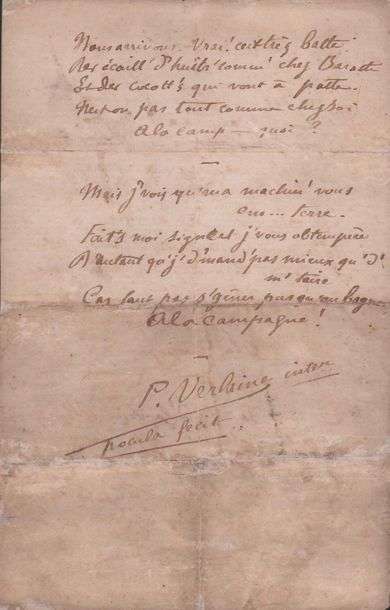 Nous arrivons. Vrai! c'est très batte.
Des écaill' d'huîtr' comm' chez Baratte
Et des cocott's qui vont à patte.
N'est-on pas tout comme chez soi
A la camp — quoi?
—
Mais j'vois qu'ma machin' vous
em... terre.
Fait's moi signe et j'vous obtempère
D'autant qu'j'd'mand' pas mieux qu'd'
m'taire
Car faut pas s'gêner
A la Campagne!
—
P. Verlaine inter
pocula fecit..